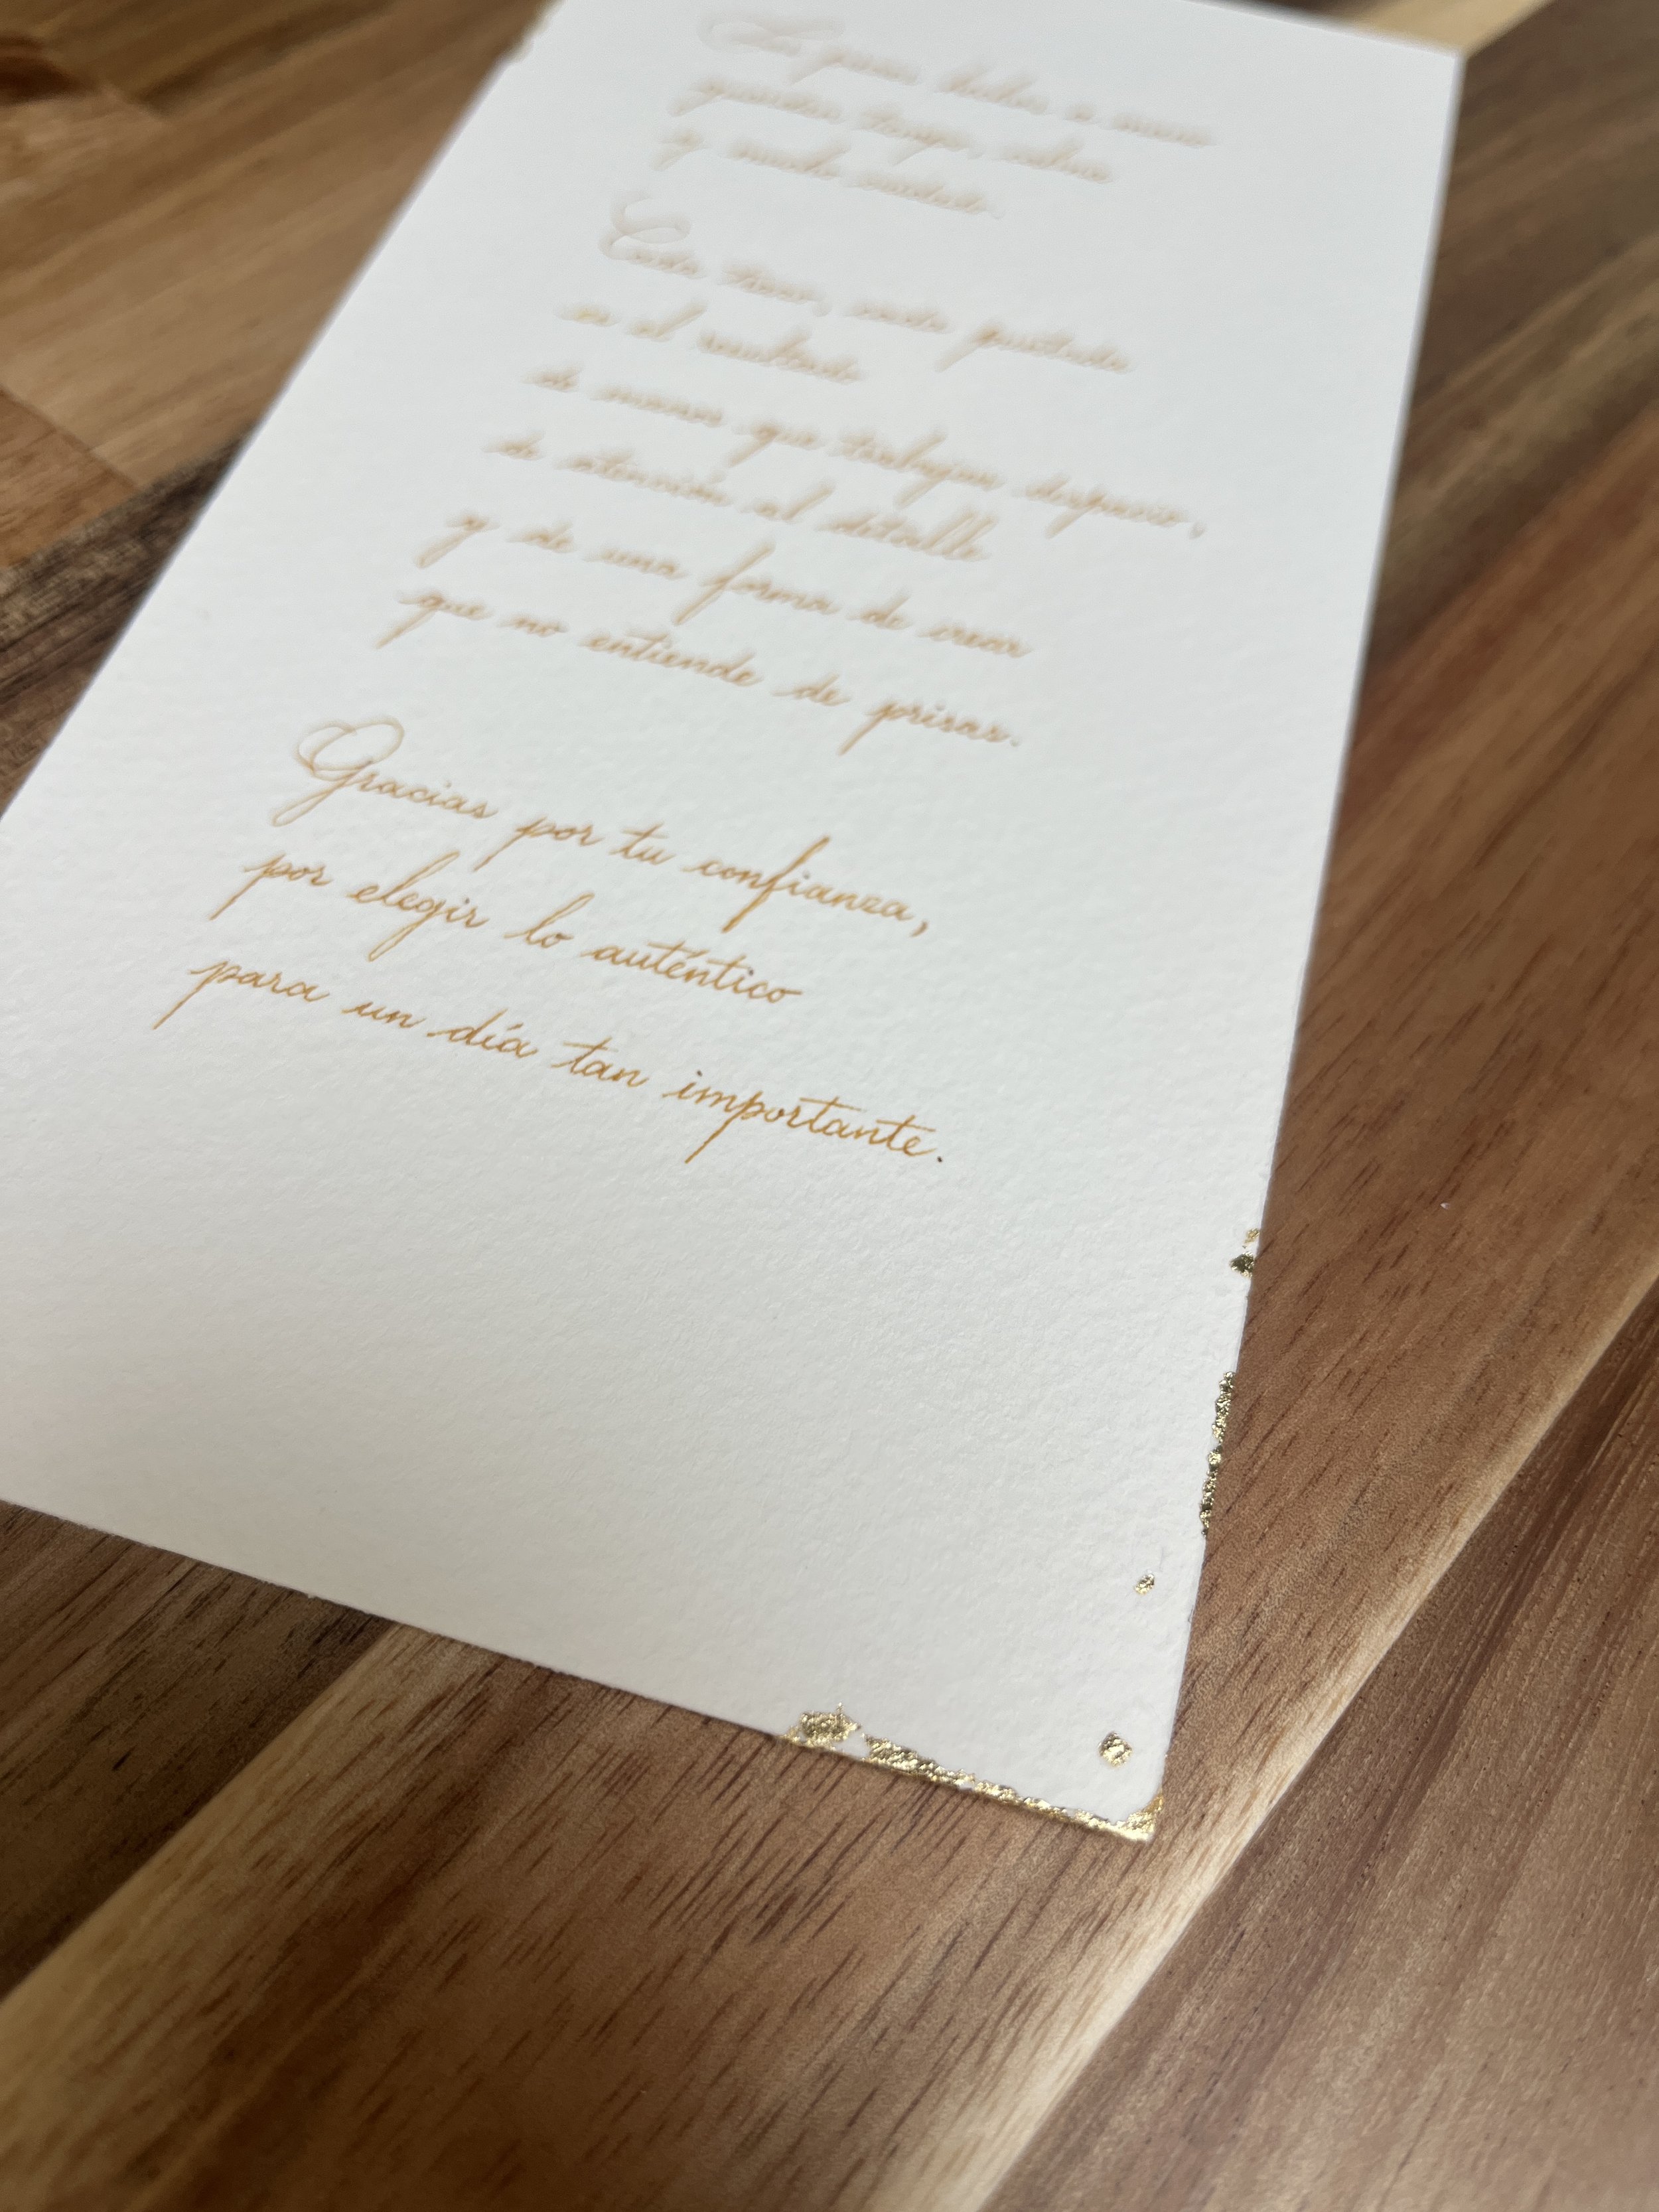 Las piezas hechas a mano
guardan tiempo, calma
y mucho cuidado.
Cada trazo, cada puntada
es el resultado
de manos que trabajan despacio,
de atención al detalle
y de una forma de crear
que no entiende de prisas.
Gracias por tu confianza,
por elegir lo auténtico
para un día tan importante.